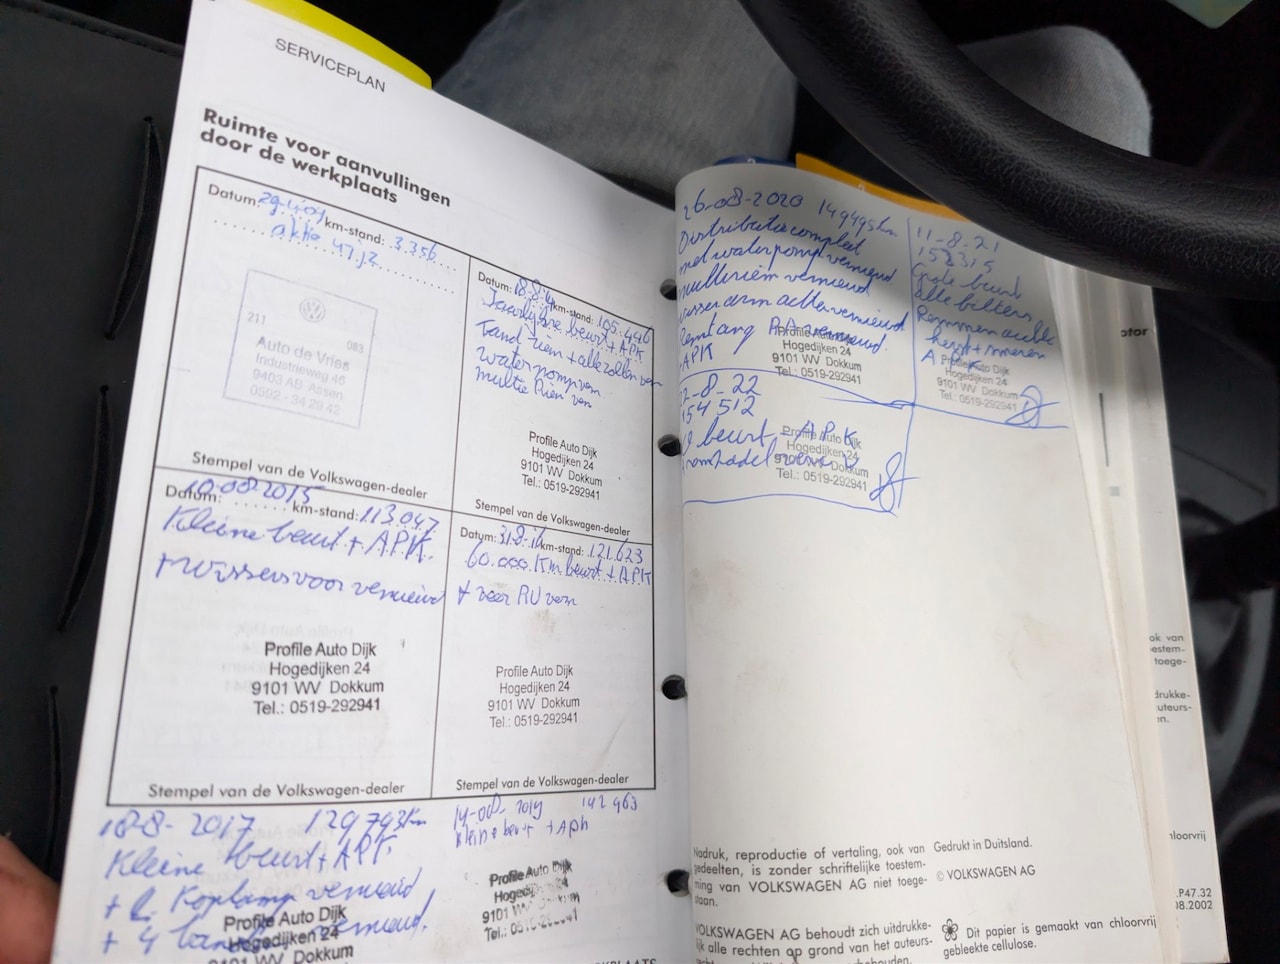 SERVICEPLAN
Ruimte voor aanvullingen
door de werkplaats
Datum: km-stand: 3.356
aktie 47j2
211 083
Auto de Vries
Industrieweg 46
9403 AB Assen
0592 - 34 29 42
Stempel van de Volkswagen-dealer
Datum: km-stand: 105.446
Jaarlijkse beurt + APK
Tand riem + alle rollen ver
waterpomp ver
multie Riem ver
Profile Auto Dijk
Hogedijken 24
9101 WV Dokkum
Tel.: 0519-292941
Stempel van de Volkswagen-dealer
Datum: 10-08-2015 km-stand: 113.047
Kleine beurt + A.P.K.
+ Wissers voor vernieuwd
Profile Auto Dijk
Hogedijken 24
9101 WV Dokkum
Tel.: 0519-292941
Stempel van de Volkswagen-dealer
Datum: 31-8-16 km-stand: 121.623
60.000 Km beurt + APK
+ veer RV vern
Profile Auto Dijk
Hogedijken 24
9101 WV Dokkum
Tel.: 0519-292941
Stempel van de Volkswagen-dealer
18-8-2017 129793km
Kleine beurt + APK.
+ l. Koplamp vernieuwd
+ 4 vernieuwd.
Profile Auto Dijk
Hogedijken 24
9101 WV Dokkum
14-08-2019 142963
kleine beurt + APK
Profile Auto Dijk
Hogedijken 24
9101 WV Dokkum
Tel.: 0519-292941
26-08-2020 149495km
Distributie compleet
met waterpomp vernieuwd
multieriem vernieuwd
wisserarm achter vernieuwd
Remtang RA vernieuwd.
APK
Profile Auto Dijk
Hogedijken 24
9101 WV Dokkum
Tel.: 0519-292941
11-8-21
152315
Grote beurt
alle filters
Remmen achter
APK
Profile Auto Dijk
Hogedijken 24
9101 WV Dokkum
Tel.: 0519-292941
2-8-22
154512
beurt - APK
Profile Auto Dijk
Hogedijken 24
9101 WV Dokkum
Tel.: 0519-292941
Nadruk, reproductie of vertaling, ook van
gedeelten, is zonder schriftelijke toestem-
ming van VOLKSWAGEN AG niet toege-
staan.
VOLKSWAGEN AG behoudt zich uitdrukke-
lijk alle rechten op grond van het auteurs-
Gedrukt in Duitsland.
© VOLKSWAGEN AG
Dit papier is gemaakt van chloorvrij
gebleekte cellulose.
otor
ok van
oestem-
toege-
drukke-
uteurs-
n.
hloorvrij
.P47.32
08.2002